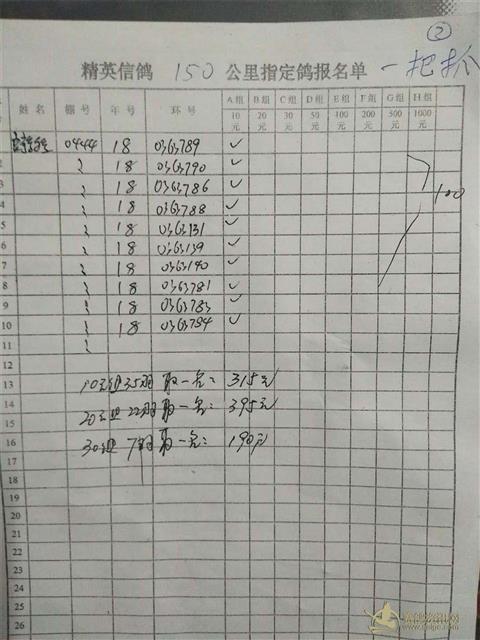 ②
精英信鸽 150 公里指定鸽报名单 一把抓
姓名 棚号 年号 环号 A组 B组 C组 D组 E组 F组 G组 H组
10元 20元 30元 50元 100元 200元 500元 1000元
0444 18 0363789 ✓
2 〃 18 0363790 ✓
3 〃 18 0363786 ✓
4 〃 18 0363788 ✓ 100
5 〃 18 0363131 ✓
6 〃 18 0363139 ✓
7 〃 18 0363140 ✓
8 〃 18 0363781 ✓
9 〃 18 0363783 ✓
10 〃 18 0363794 ✓
11 〃
12
13 10元组35羽取一名：315元
14
15 20元组22羽取一名：395元
16 30元组7羽取一名：190元
17
18
19
20
21
22
23
24
25
26